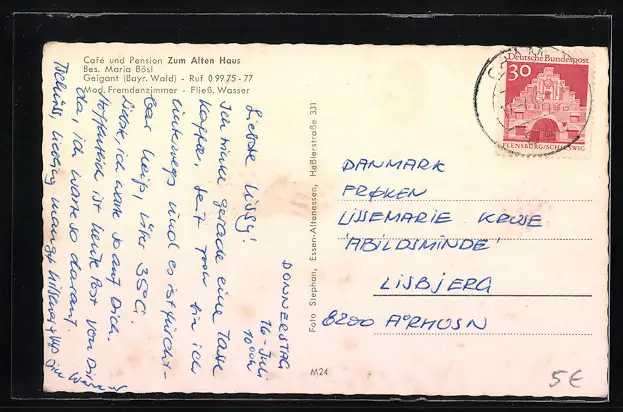 Café und Pension Zum Alten Haus
Bes. Maria Bösl
Geigant (Bayr. Wald) - Ruf 0 99 75 - 77
Mod. Fremdenzimmer - Fließ. Wasser
DONNERSTAG
16. Juli
10 Uhr
Liebste Lissy!
Ich trinke gerade eine Tasse
Kaffee, seit 7 Uhr bin ich
unterwegs und es ist furcht-
bar heiß, über 35°C.
Liebe, ich warte so auf Dich.
Hoffentlich ist heute Post von Dir
da, ich warte so darauf.
Tschüss, Liebling
Foto Stephan, Essen-Altenessen, Heßlerstraße 331
M24
Deutsche Bundespost
30
FLENSBURG/SCHLESWIG
DANMARK
FRØKEN
LISSEMARIE KRUSE
'ABILDSMINDE'
LISBJERG
8200 AARHUS N
5€